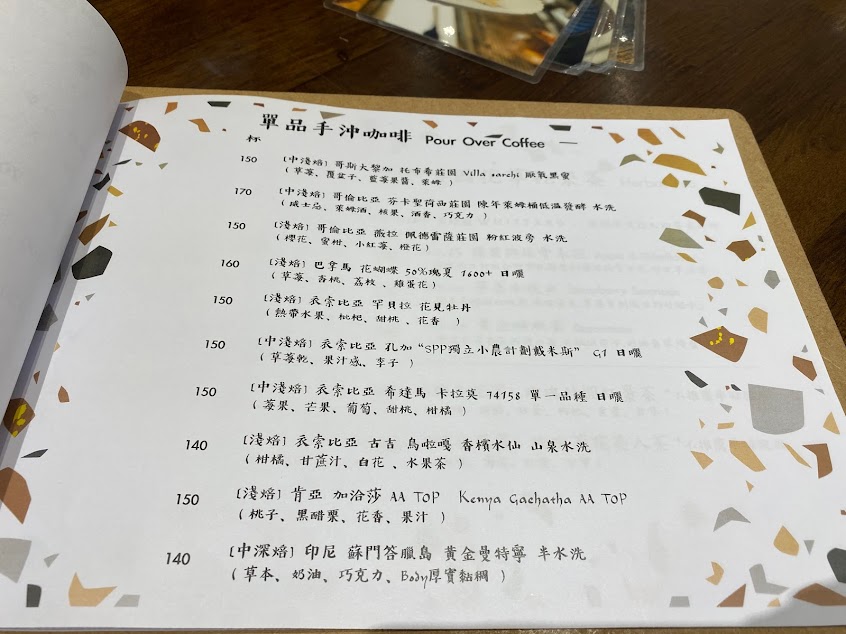 單品手沖咖啡 Pour Over Coffee
杯
150 [中淺焙] 哥斯大黎加 托布希莊園 Villa sarchi 厭氧黑蜜
( 草莓、覆盆子、藍莓果醬、萊姆 )
170 [中淺焙] 哥倫比亞 芬卡聖荷西莊園 陳年萊姆桶低溫發酵 水洗
( 威士忌、萊姆酒、核果、酒香、巧克力 )
150 [淺焙] 哥倫比亞 薇拉 佩德雷薩莊園 粉紅波旁 水洗
( 櫻花、蜜柑、小紅莓、橙花 )
160 [淺焙] 巴拿馬 花蝴蝶 50%瑰夏 1600+ 日曬
( 草莓、杏桃、荔枝 、雞蛋花 )
150 [淺焙] 衣索比亞 罕貝拉 花見牡丹
( 熱帶水果、枇杷、甜桃 、花香 )
150 [中淺焙] 衣索比亞 孔加 “SPP獨立小農計劃戴米斯” G1 日曬
( 草莓乾、果汁感、李子 )
150 [中淺焙] 衣索比亞 希達馬 卡拉莫 74158 單一品種 日曬
( 莓果、芒果、葡萄、甜桃、柑橘 )
140 [淺焙] 衣索比亞 古吉 烏啦嘎 香檳水仙 山泉水洗
( 柑橘、甘蔗汁、白花 、水果茶 )
150 [淺焙] 肯亞 加洽莎 AA TOP Kenya Gachatha AA TOP
( 桃子、黑醋栗、花香、果汁 )
140 [中深焙] 印尼 蘇門答臘島 黃金曼特寧 半水洗
( 草本、奶油、巧克力、Body厚實黏稠 )